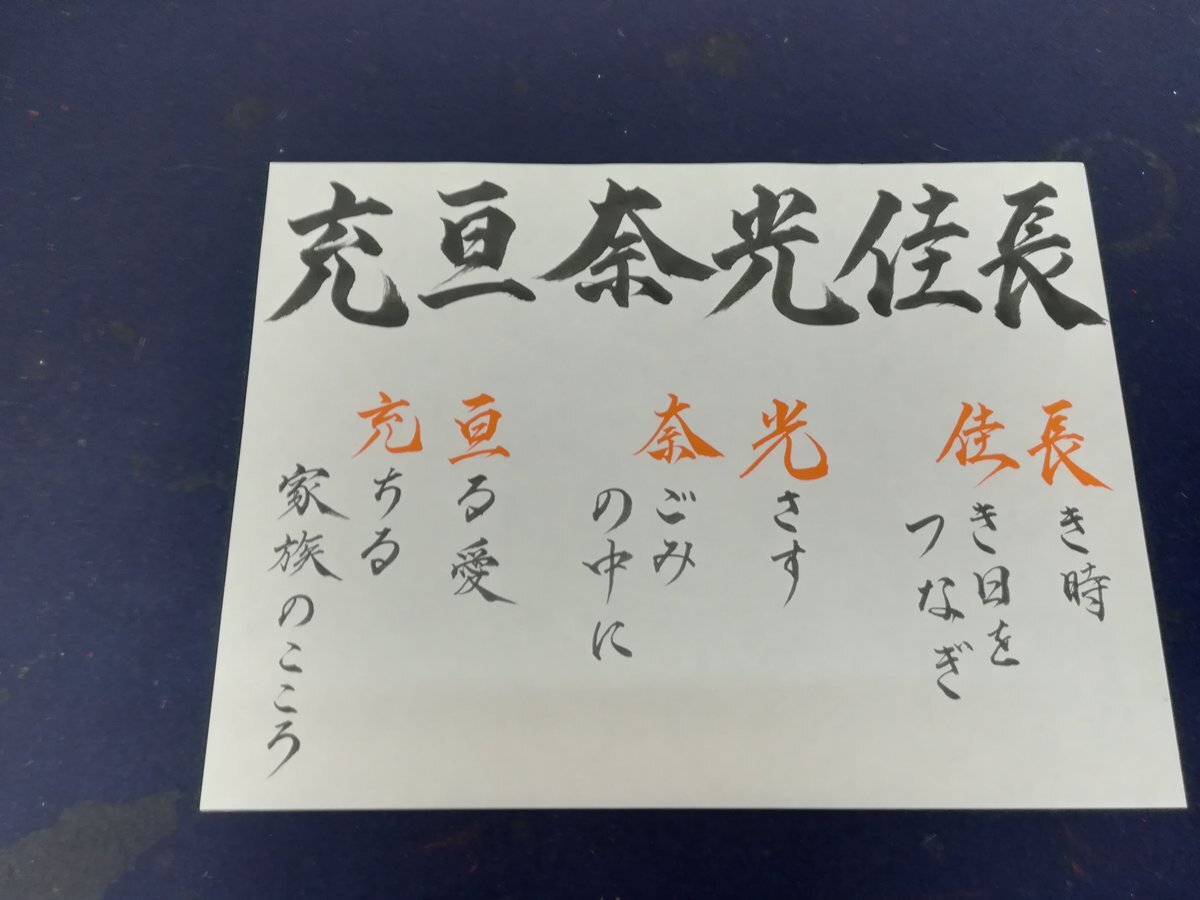 長佳光奈亘充
長き時
佳き日を
つなぎ
光さす
奈ごみ
の中に
亘る愛
充ちる
家族のこころ